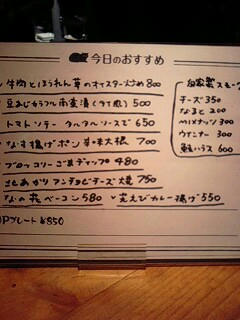 今日のおすすめ
牛肉とほうれん草のオイスター炒め 800
豆あじカラフル南蛮漬(タイ風) 500
トマトソテー タルタルソースで 650
なす揚げポン 大根 700
ブロッコリーごまディップ 480
きたあかりアンチョビチーズ焼 750
なの花ベーコン 580
芝えびカレー揚げ 550
Pプレート ¥850
自家製スモーク
チーズ 350
なると 200
MIXナッツ 300
ウインナー 300
600